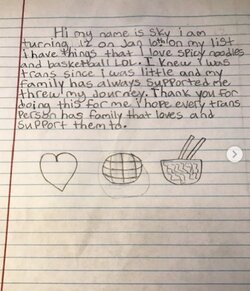 Hi my name is Sky i am
turning 12 on Jan 10th on my list
i have things that I love spicy noodles
and basketball LOL. I knew I was
trans since i was little and my
family has always supported me
threw my journey. Thank you for
doing this for me I hope every trans
person has family that loves and
support them to.